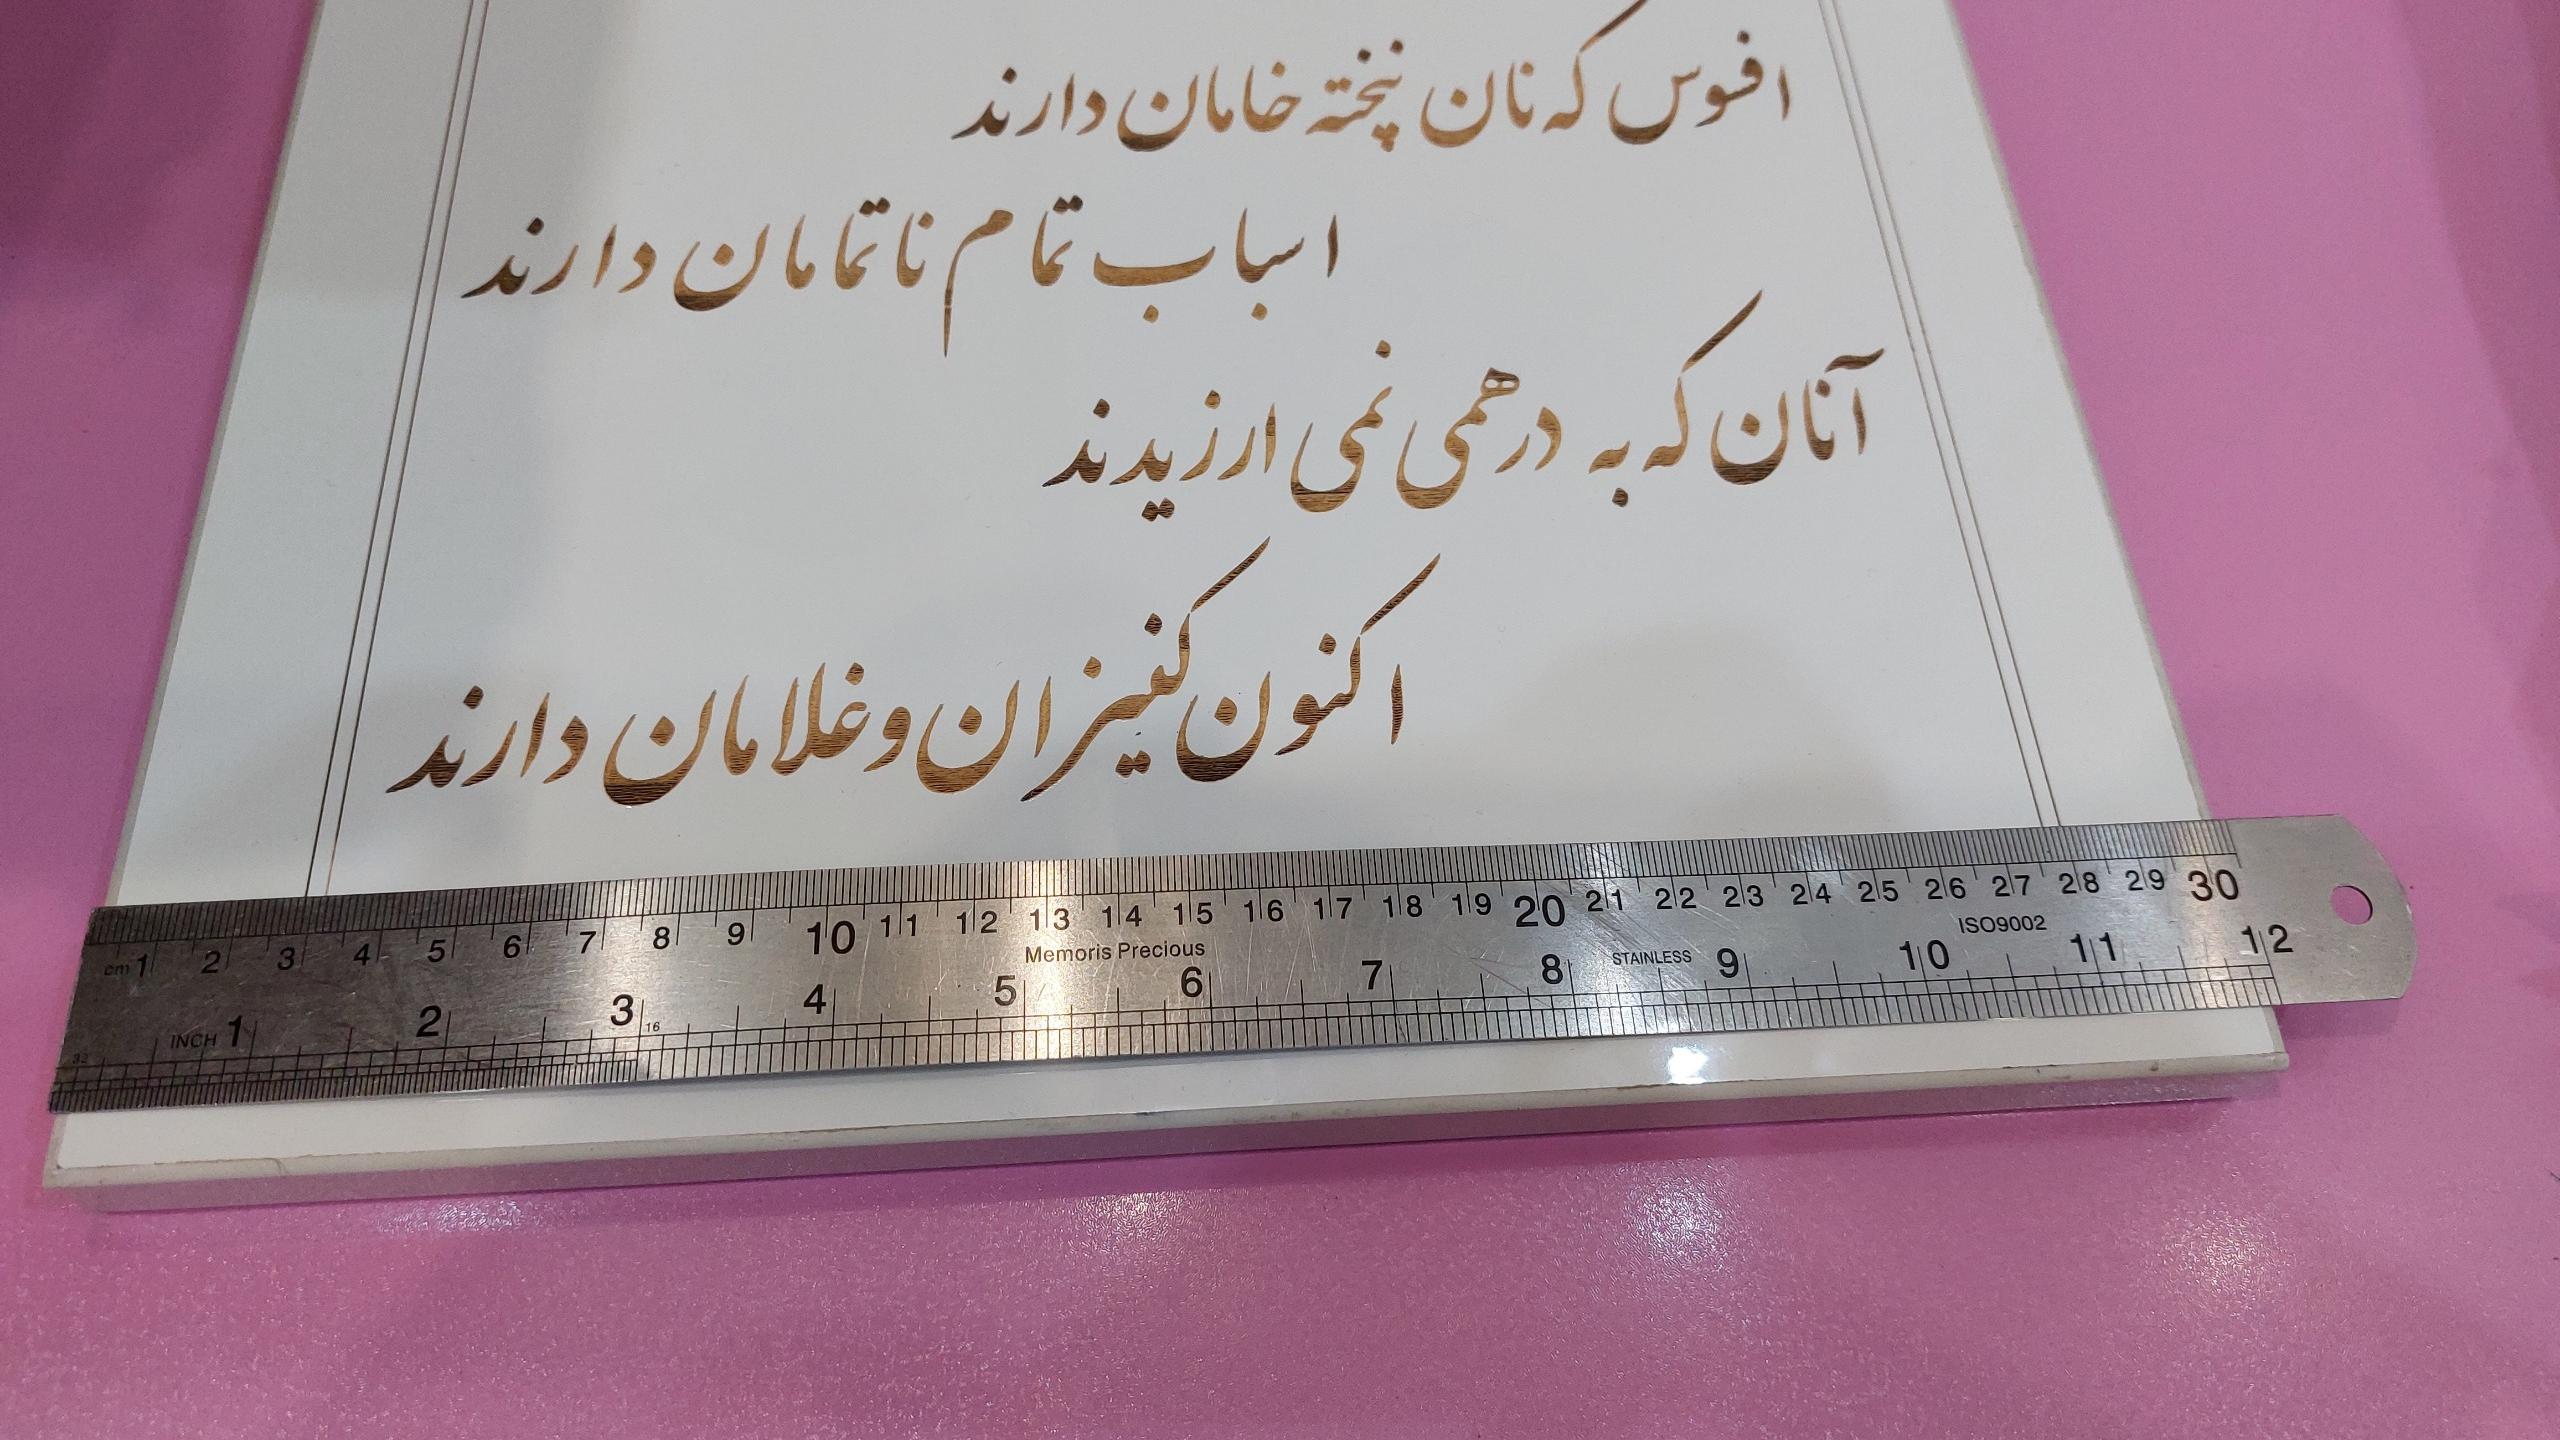 افسوس که نان پخته خامان دارند
اسباب تمام ناتمامان دارند
آنان که به درهمی نمی ارزیدند
اکنون کنیزان و غلامان دارند
cm 1 2 3 4 5 6 7 8 9 10 11 12 13 14 15 16 17 18 19 20 21 22 23 24 25 26 27 28 29 30
Memoris Precious STAINLESS ISO9002
32 INCH 1 2 3 16 4 5 6 7 8 9 10 11 12